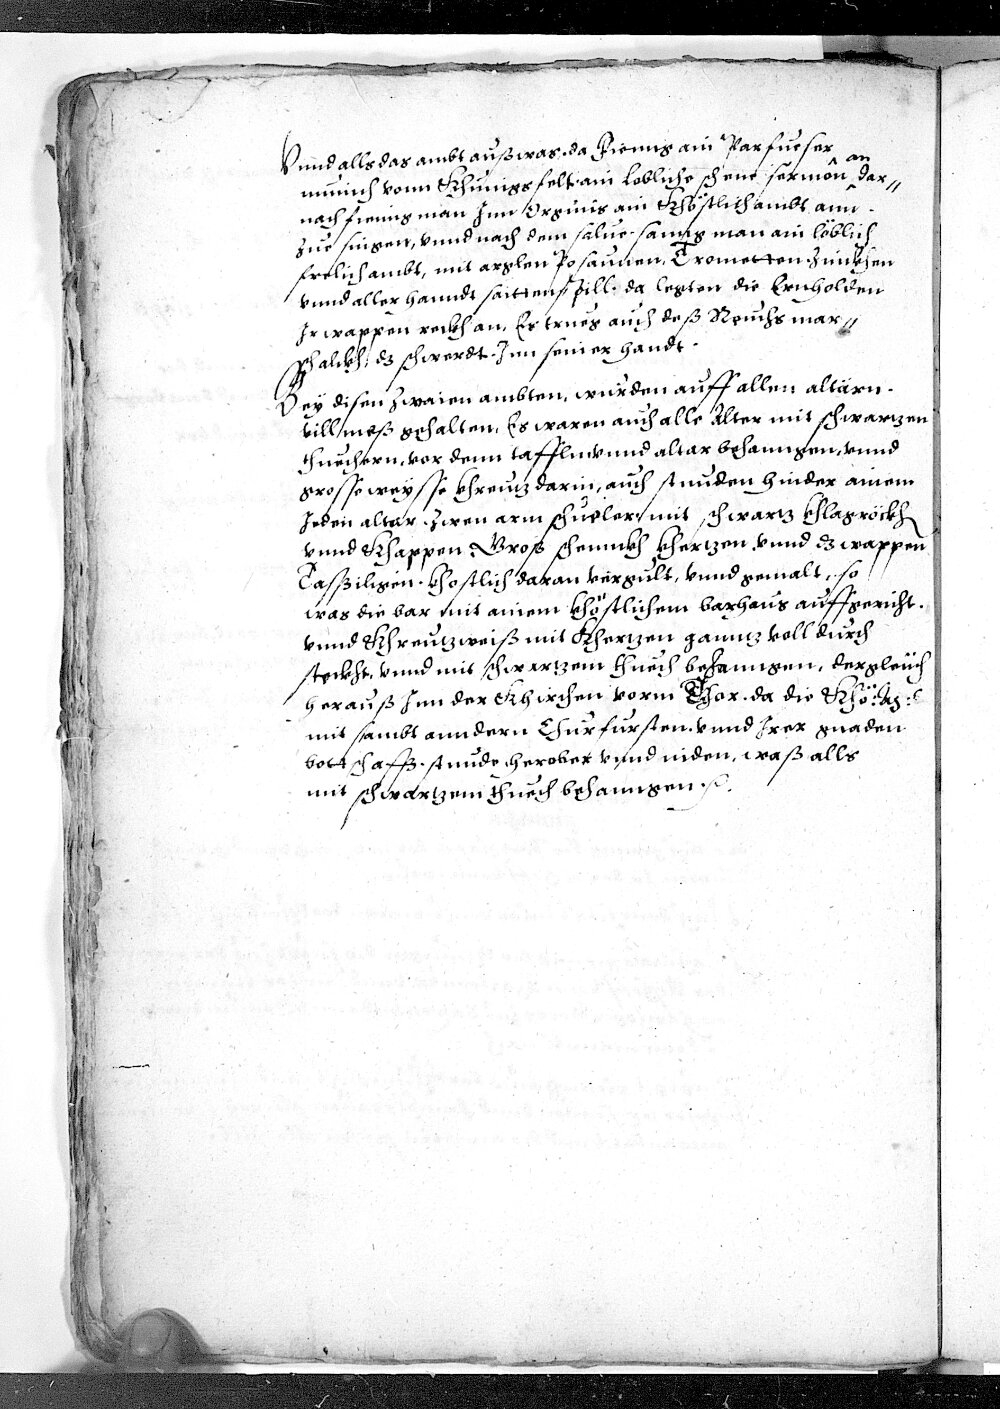 Vnnd alls das ambt auß was. da Fienng ain Parfueser
münich vonn Khünigsfelt. ain lobliche schene sermôn an dar//
nach fienng man Jnn Orgmis ain Khöstlich ambt ann.
zue singen, vnnd nach dem salue. sanng man ain löblich
frelich ambt, mit orglen Posaunen, Trometten. Zinckhen
vnnd aller hanndt saittenspill. da legten die Ernholden
Jr wappen reckh an, Es trueg auch deß Reychs mar//
schalckh, dz schwerdt. Jnn seiner handt.
Bey disen zwaien ambten, wurden auff allen altärn.
vill meß gehalten, Es waren auch alle Alter mit schwartzen
thuechern, vor denn tafflen vnnd altar behanngen, vnnd
grosse weysse khreutz darin, auch stuuden hinder ainem
Jeden altar. zwen arm schueler, mit schwartz khlagröckh
vnnd Khappen. Groß schennkh khertzen vnnd dz wappen
Tassiligen. khostlich daran vergult, vnnd gemalt, so
was die bar mit ainem khöstlichem barhaus auffgericht.
vnnd Khreutzweiß mit Khertzen ganntz voll durch
steckht. vnnd mit schwartzem thuech behanngen, dergleich
herauß Jnn der Khirchen vorm Chor. da die Khö:
mit sambt anndern Churfursten. vnnd Jrer gnaden
bottschafft. stuude, herober vnnd niden, waß alls
mit schwartzem thuech behanngen.